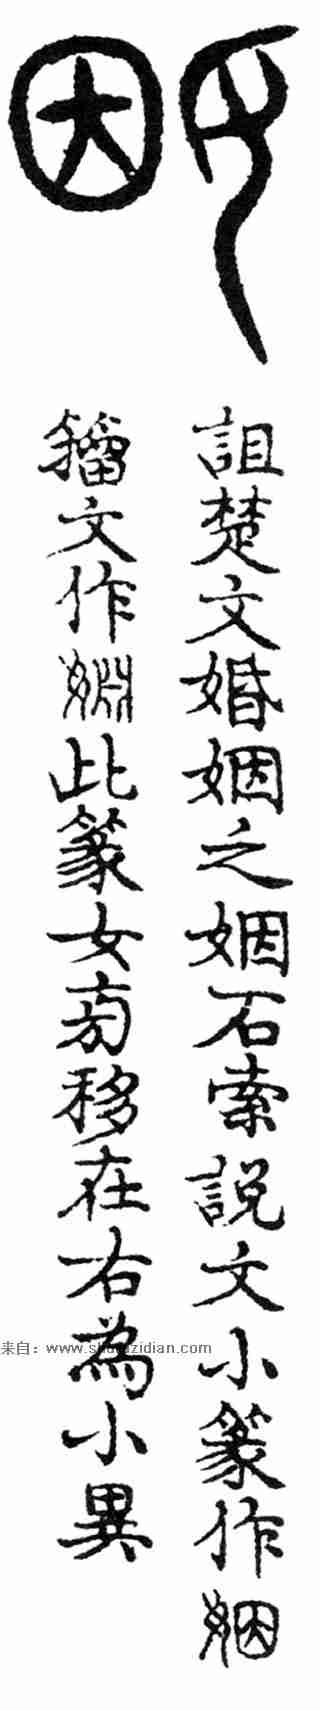 姻
詛楚文婚姻之姻石索說文小篆作姻
籀文作婣此篆女旁移在右為小異
来自：www.shufazidian.com